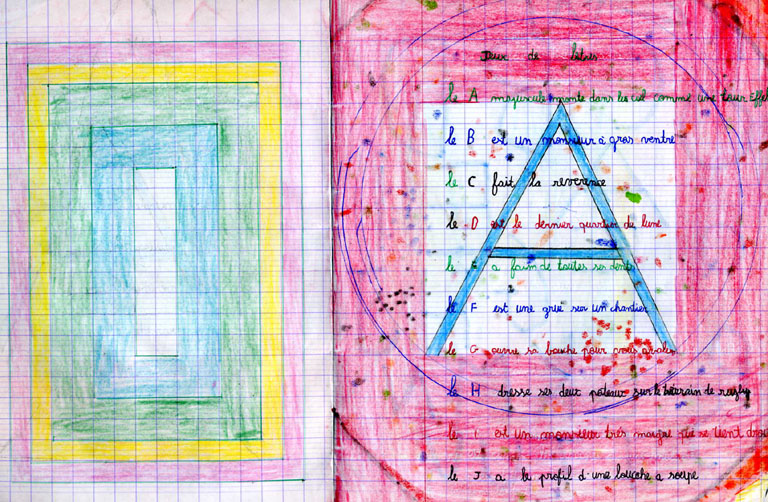 Jeux de lettres
le A majuscule monte dans le ciel comme une tour Effel
le B est un monsieur à gros ventre
le C fait la reverence
le D est le dernier quartier de lune
le E a faim de toutes ses dents
le F est une grue sur un chantier
le G ouvre sa bouche pour vous avaler
le H dresse ses deux poteaux sur le terrain de rugby
le i est un monsieur très maigre qui se tient droit
le J a le profil d'une louche a soupe